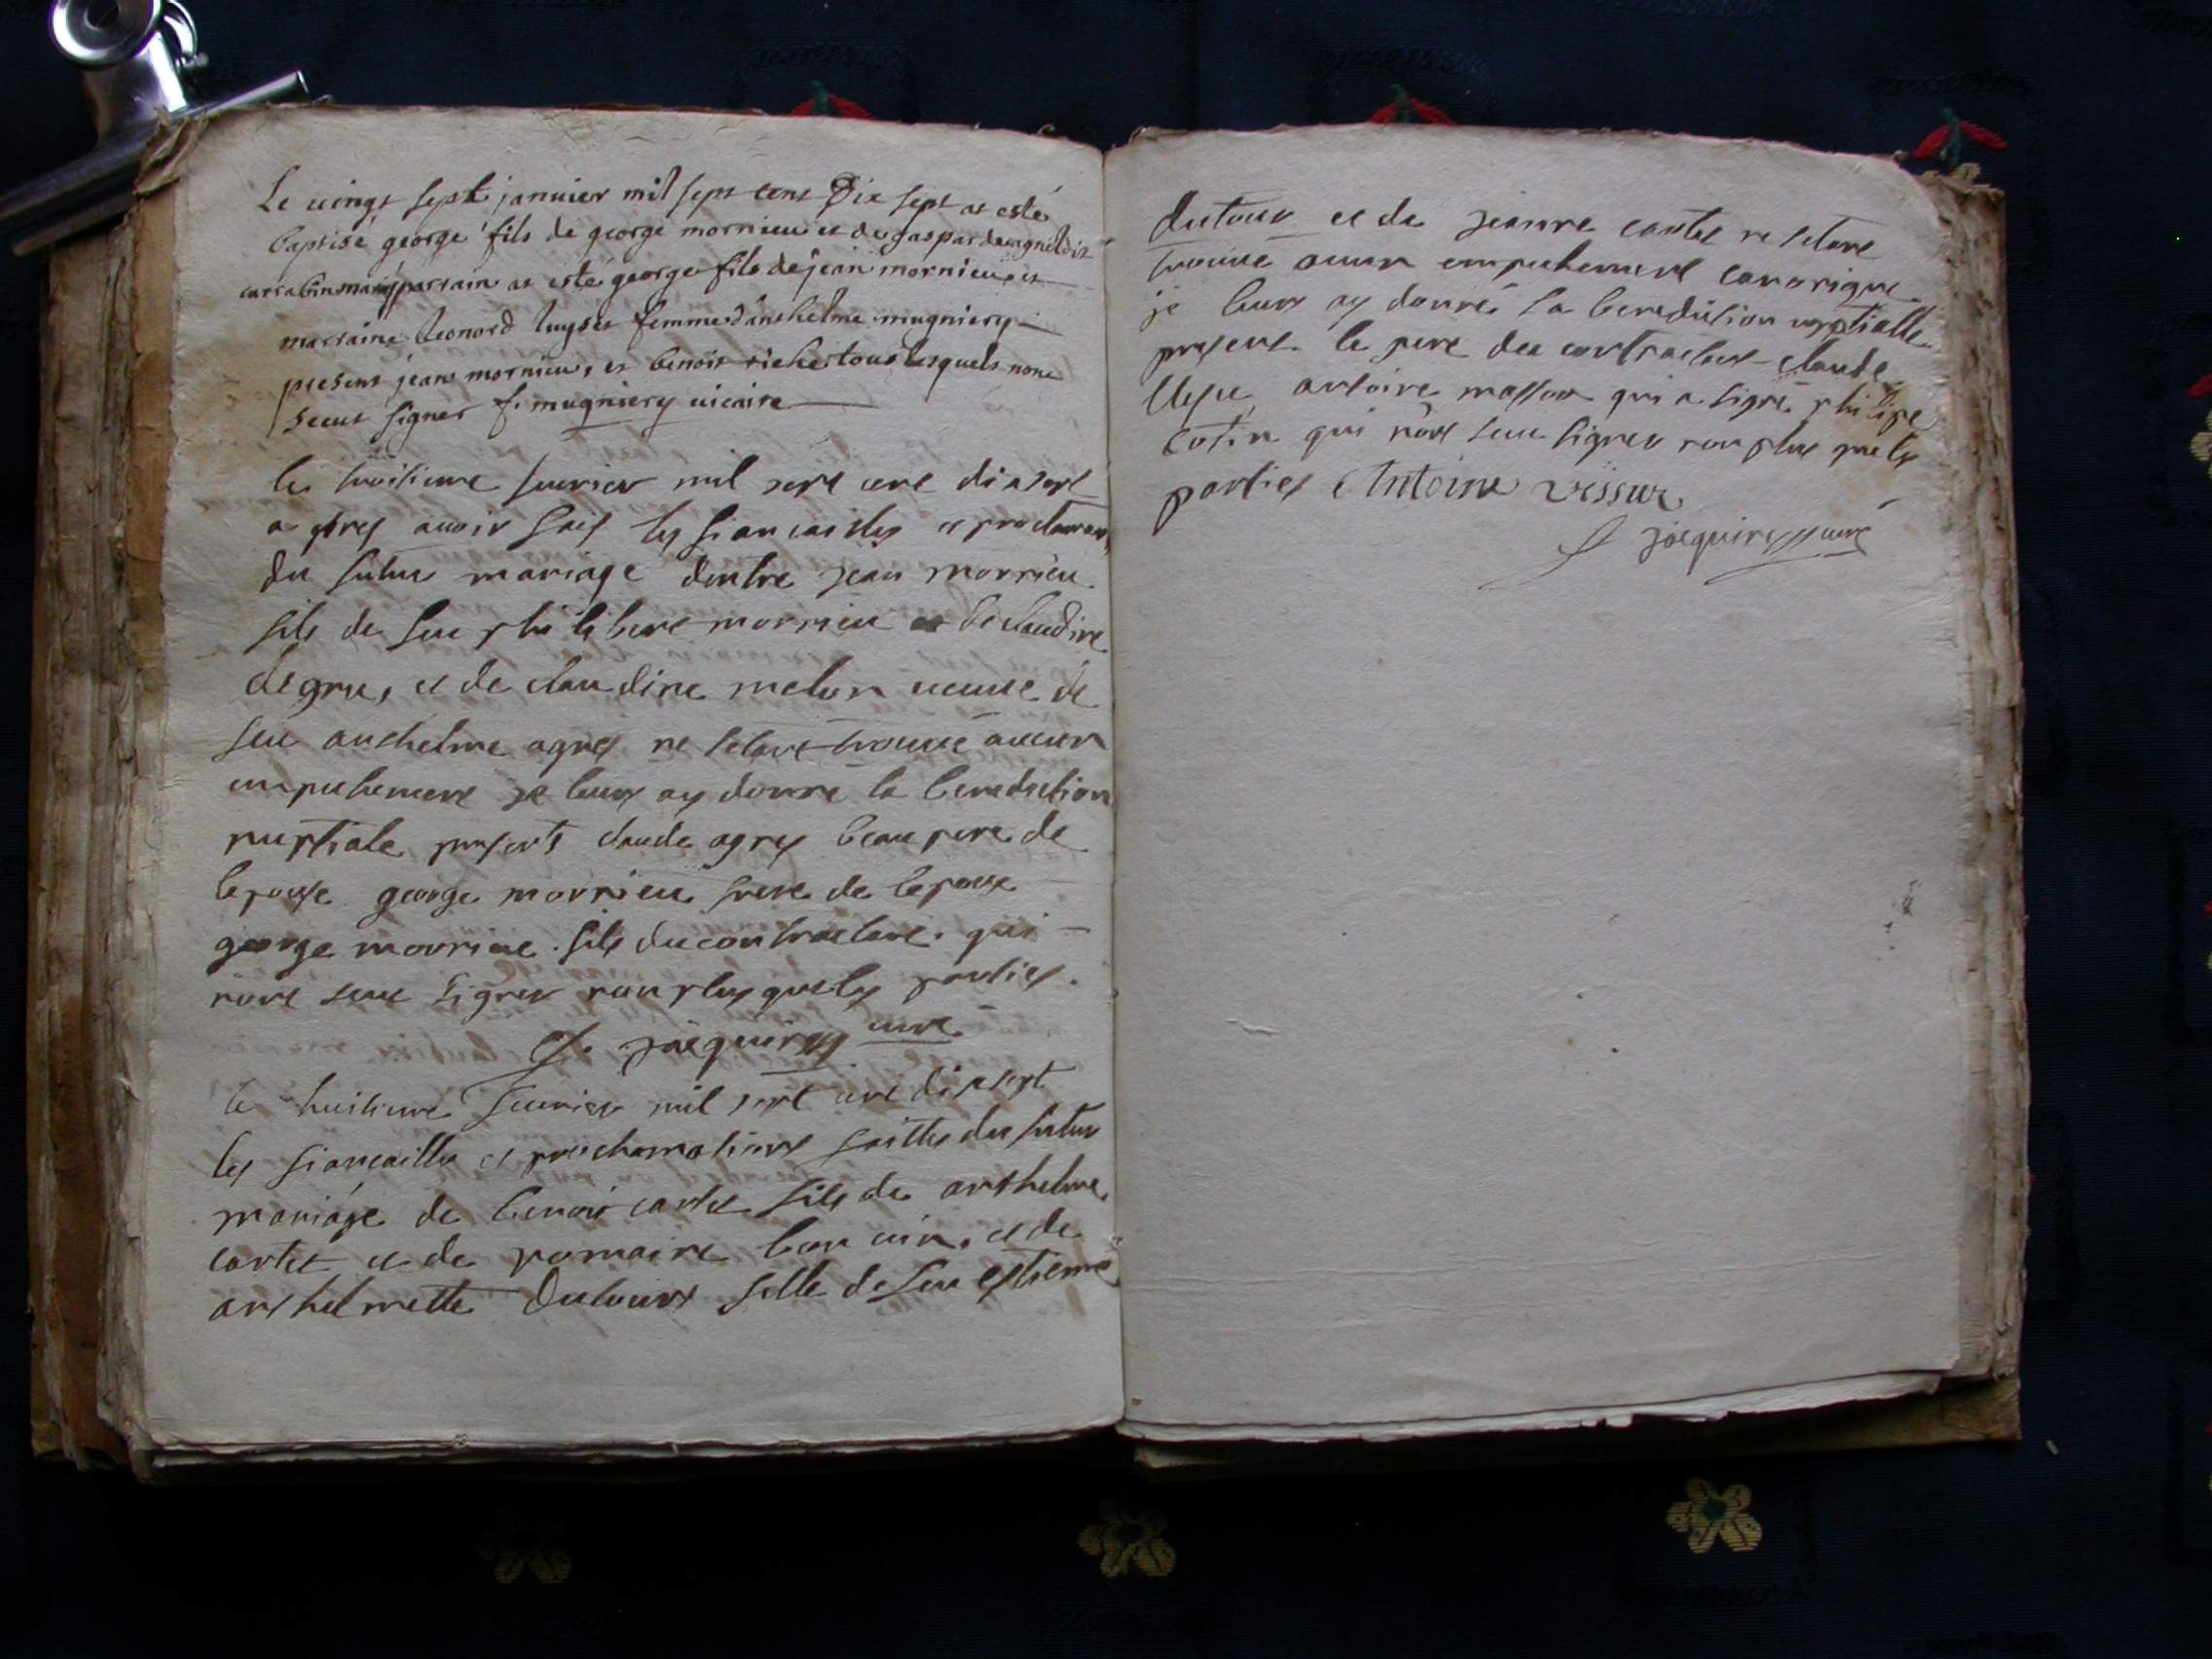 Le vingt sept janvier mil sept cent Dix sept at esté
baptisé george fils de george mornieu et de gasparde agnel dit
parrain at esté george fils de jean mornieu, et
marraine Leonord luyset femme d'anthelme mugniery
presens jean mornieu, et benoit richer tous lesquels nont
sceut signer f. mugniery vicaire
le troisieme fevrier mil sept cent dixsept
apres avoir fait les fiancailles et proclamaon
du futur mariage dentre jean mornieu
fils de feu philibert mornieu et de claudine
degru, et de claudine melon veuve de
feu anthelme agnes ne setant trouvé aucun
empechement je leur ay donné la benediction
nuptiale presents claude agnes beau pere de
lepouse george mornieu frere de lepoux
george mornieu fils du contractant qui
nont sceu signer non plus que les parties.
J. jacquinet curé
le huitieme fevrier mil sept cent dixsept
les fiancailles et proclamations faittes du futur
mariage de benoit cartet fils de anthelme
cartet et de romaine bon vin, et de
anthelmette Dutour fille de feu estienne
dutour et de jeanne cartet ne setant
trouvé aucun empechement canonique
je leur ay donné la benediction nuptialle
present le pere du contractant claude
antoine qui a signé philipe
cotin qui nont sceu signer non plus que les
parties Antoine vissur
J jacquinet curé